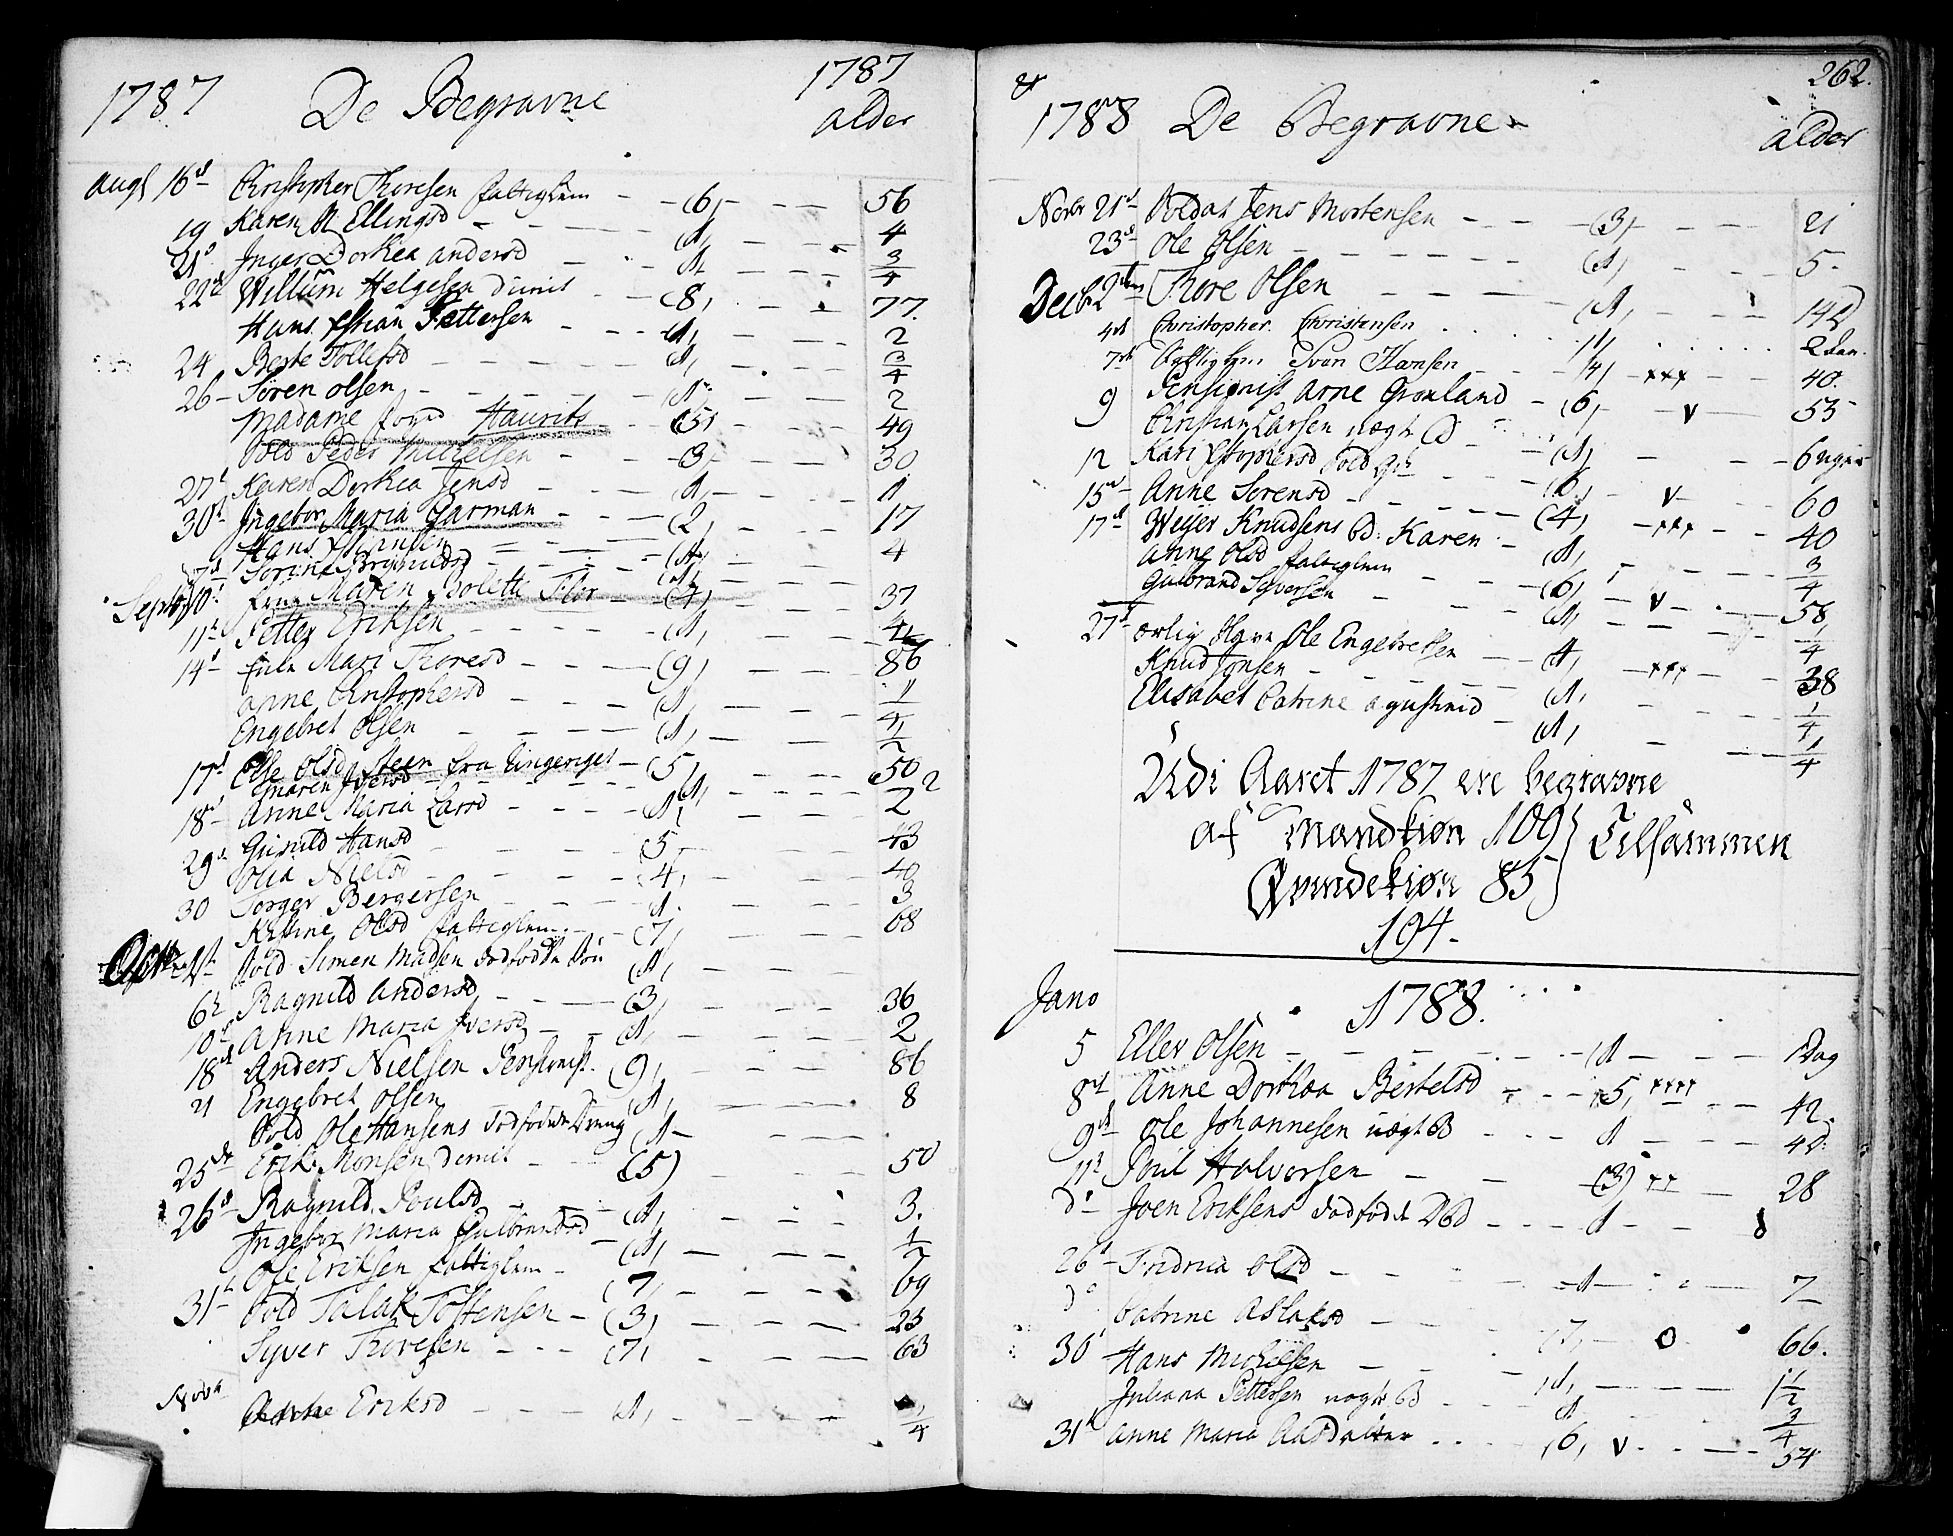 1787 De Begravne 1787 alder
Augs 16d Christopher Thoresen fattiglem (6, 56
19 Karen M Ellingsd (1, 4
21d Inger Dorthea Andersd (1, 3/4
22d Willum Helgesen Dimit (8, 77
Hans Christian Pettersen (1, 2
24 Berte Tollefsd (1, 3/4
26 Søren Olsen (1, 2
Madame Haurits (5, 49
Sold Peder Michelsen (3, 30
27d Karen Dorthea Jensd (1, 1
30d Ingebor Maria Garman (2, 17
Hans (1, 4
7d (1,
Septbr 10d Maren Bolette Flor (4, 37
11d Petter Eriksen (1,
14d Mari Thoresd (9, 86
Anne Christophersd (1, 1/4
Engebret Olsen (1, 1/2
17d Else Olsd Steen fra Ringeriget (5, 50
Maren Iversd (1, 2
18d Anne Maria Larsd (1, 2
29d Gunild Hansd (5, 43
Olia Nielsd (4, 40
30 Torger Bergersen (1, 3
Kistine Olsd fattiglem (7, 68
Octbr 1st Sold Simen Madsen dødfødde Søn (1,
6d Ragnild Andersd (3, 36
10d Anne Maria Iversd (1, 2
18d Anders Nielsen Pensionist (9, 86
21 Engebret Olsen (1, 8
Sold Ole Hansens dødfødde Dreng (1
25de Erik Monsen Dimit (5) 50
26d Ragnild Poulsd (1, 3.
Ingebor Maria Gulbrandsd (1, 1/2
Ole Eriksen fattiglem (7, 69
31d Sold Talak Tostensen (3, 23
Syver Thoresen (7, 63
Novbr Eriksd (1, 1/4
262.
1788 De Begravne alder
Novbr 21d Soldat Jens Mortensen (3, 21
23d Ole Olsen (1, 5
Decbr 2den Thore Olsen (1, 14 D
4d Christopher Christensen 1,
7d Fattiglem Svan Hansen (4, xxx 40.
9 Pensionist Arne Grønland (6, v 55
Christian Larsen uægt (1,
12 Kari Christophersd (6, v 60
15d Anne Sørensd (4, xxx 40
17d Weyer Knudsens Bd: Karen (1, 3/4
Anne Olsd fattiglem (6, v 58
Gulbrand Syversen (1, 1/4
27d Ole Engebretsen (4, xxx 38
Knud Jonsen (1, 1/4
Elisabet Catrine Agustinid (1, 1/4
Udi Aaret 1787 ere begravne
af Mandkiøn 109 } Tilsammen
Qvindekiøn 85
194.
Jano 1788.
5 Ellev Olsen (1 1 Dag
8d Anne Dorthea Bertelsd 5, xxxx 42.
9d Ole Johannesen uægt B 1
11d Poul Halvorsen (3) xx 28
do Joen Eriksens dødfødt 1
26d Fridrica Olsd 1
do Catrine Aslaksd 7, o 66.
30d Hans Michelsen 1, 1 1/2
Juliana Pettersen uægte B 1 3/4
31d Anne Maria (6, v 54